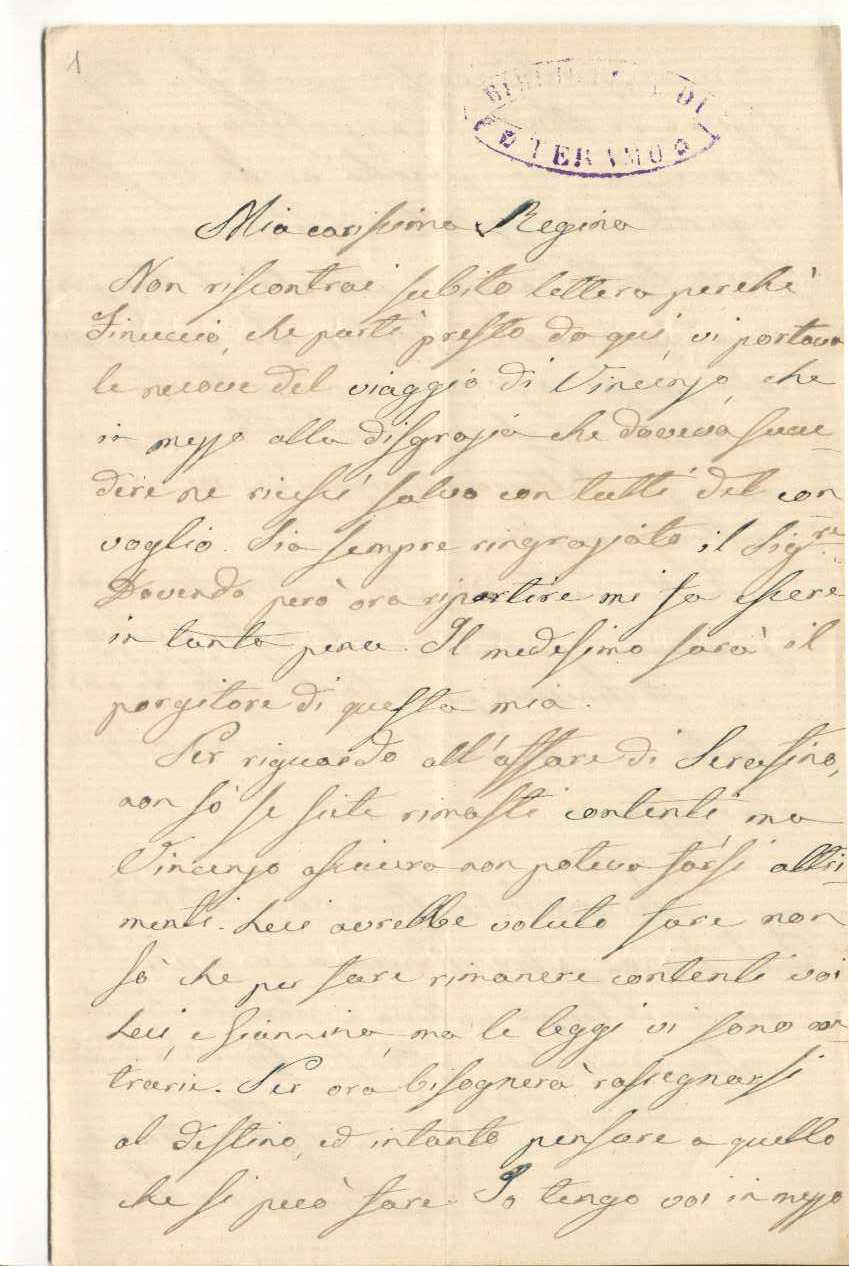 1
BIBLIOTECA DI
TERAMO
Mia carissima Regina
Non riscontrai subito lettera perchè
che partì presto da qui, vi portava
le nuove del viaggio di Vincenzo, che
in mezzo alla disgrazia che doveva succe-
dere ne riescì salvo con tutti del con
voglio. Sia sempre ringraziato il Sig.re
Dovendo però ora ripartire mi fa essere
in tanta pena. Il medesimo sarà il
porgitore di questa mia.
Per riguardo all'affare di Serafino,
non sò se siete rimasti contenti, ma
Vincenzo assicura non poteva farsi altri-
menti. Lui avrebbe voluto fare non
sò che per fare rimanere contenti voi
Lui, e Giannina, ma le leggi vi sono con-
trarie. Per ora bisognerà rassegnarsi
al destino, ed intanto pensare a quello
che si può fare. Io tengo voi in mezzo